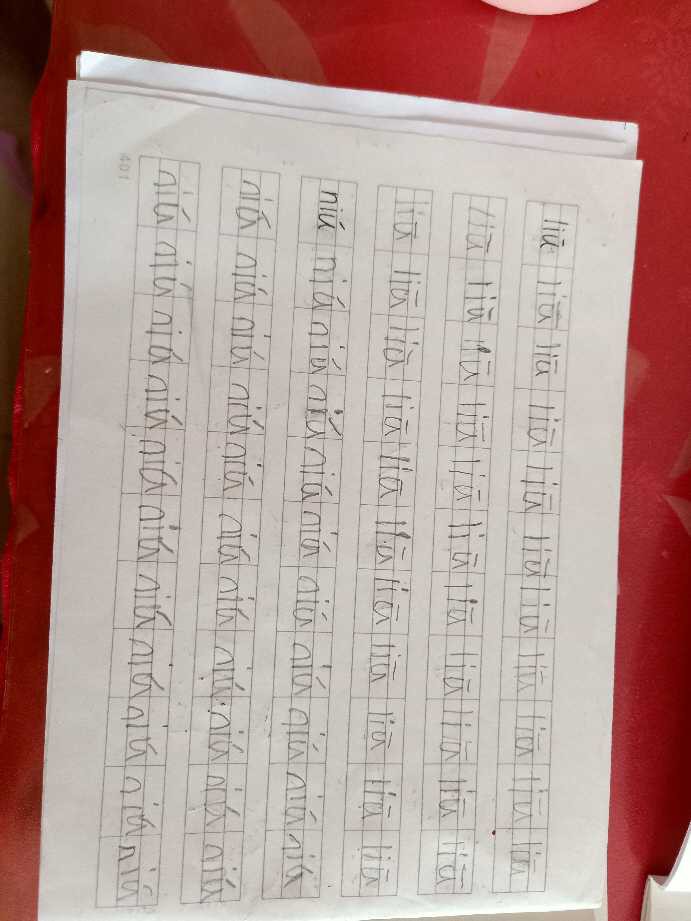 liū liū liū liū liū liū liū liū liū liū liū
liū liū liū liū liū liū liū liū liū liū liū
liū liū liū liū liū liū liū liū liū liū liū
niú niú niú niú niú niú niú niú niú niú niú
niú niú niú niú niú niú niú niú niú niú niú
niú niú niú niú niú niú niú niú niú niú niú
401